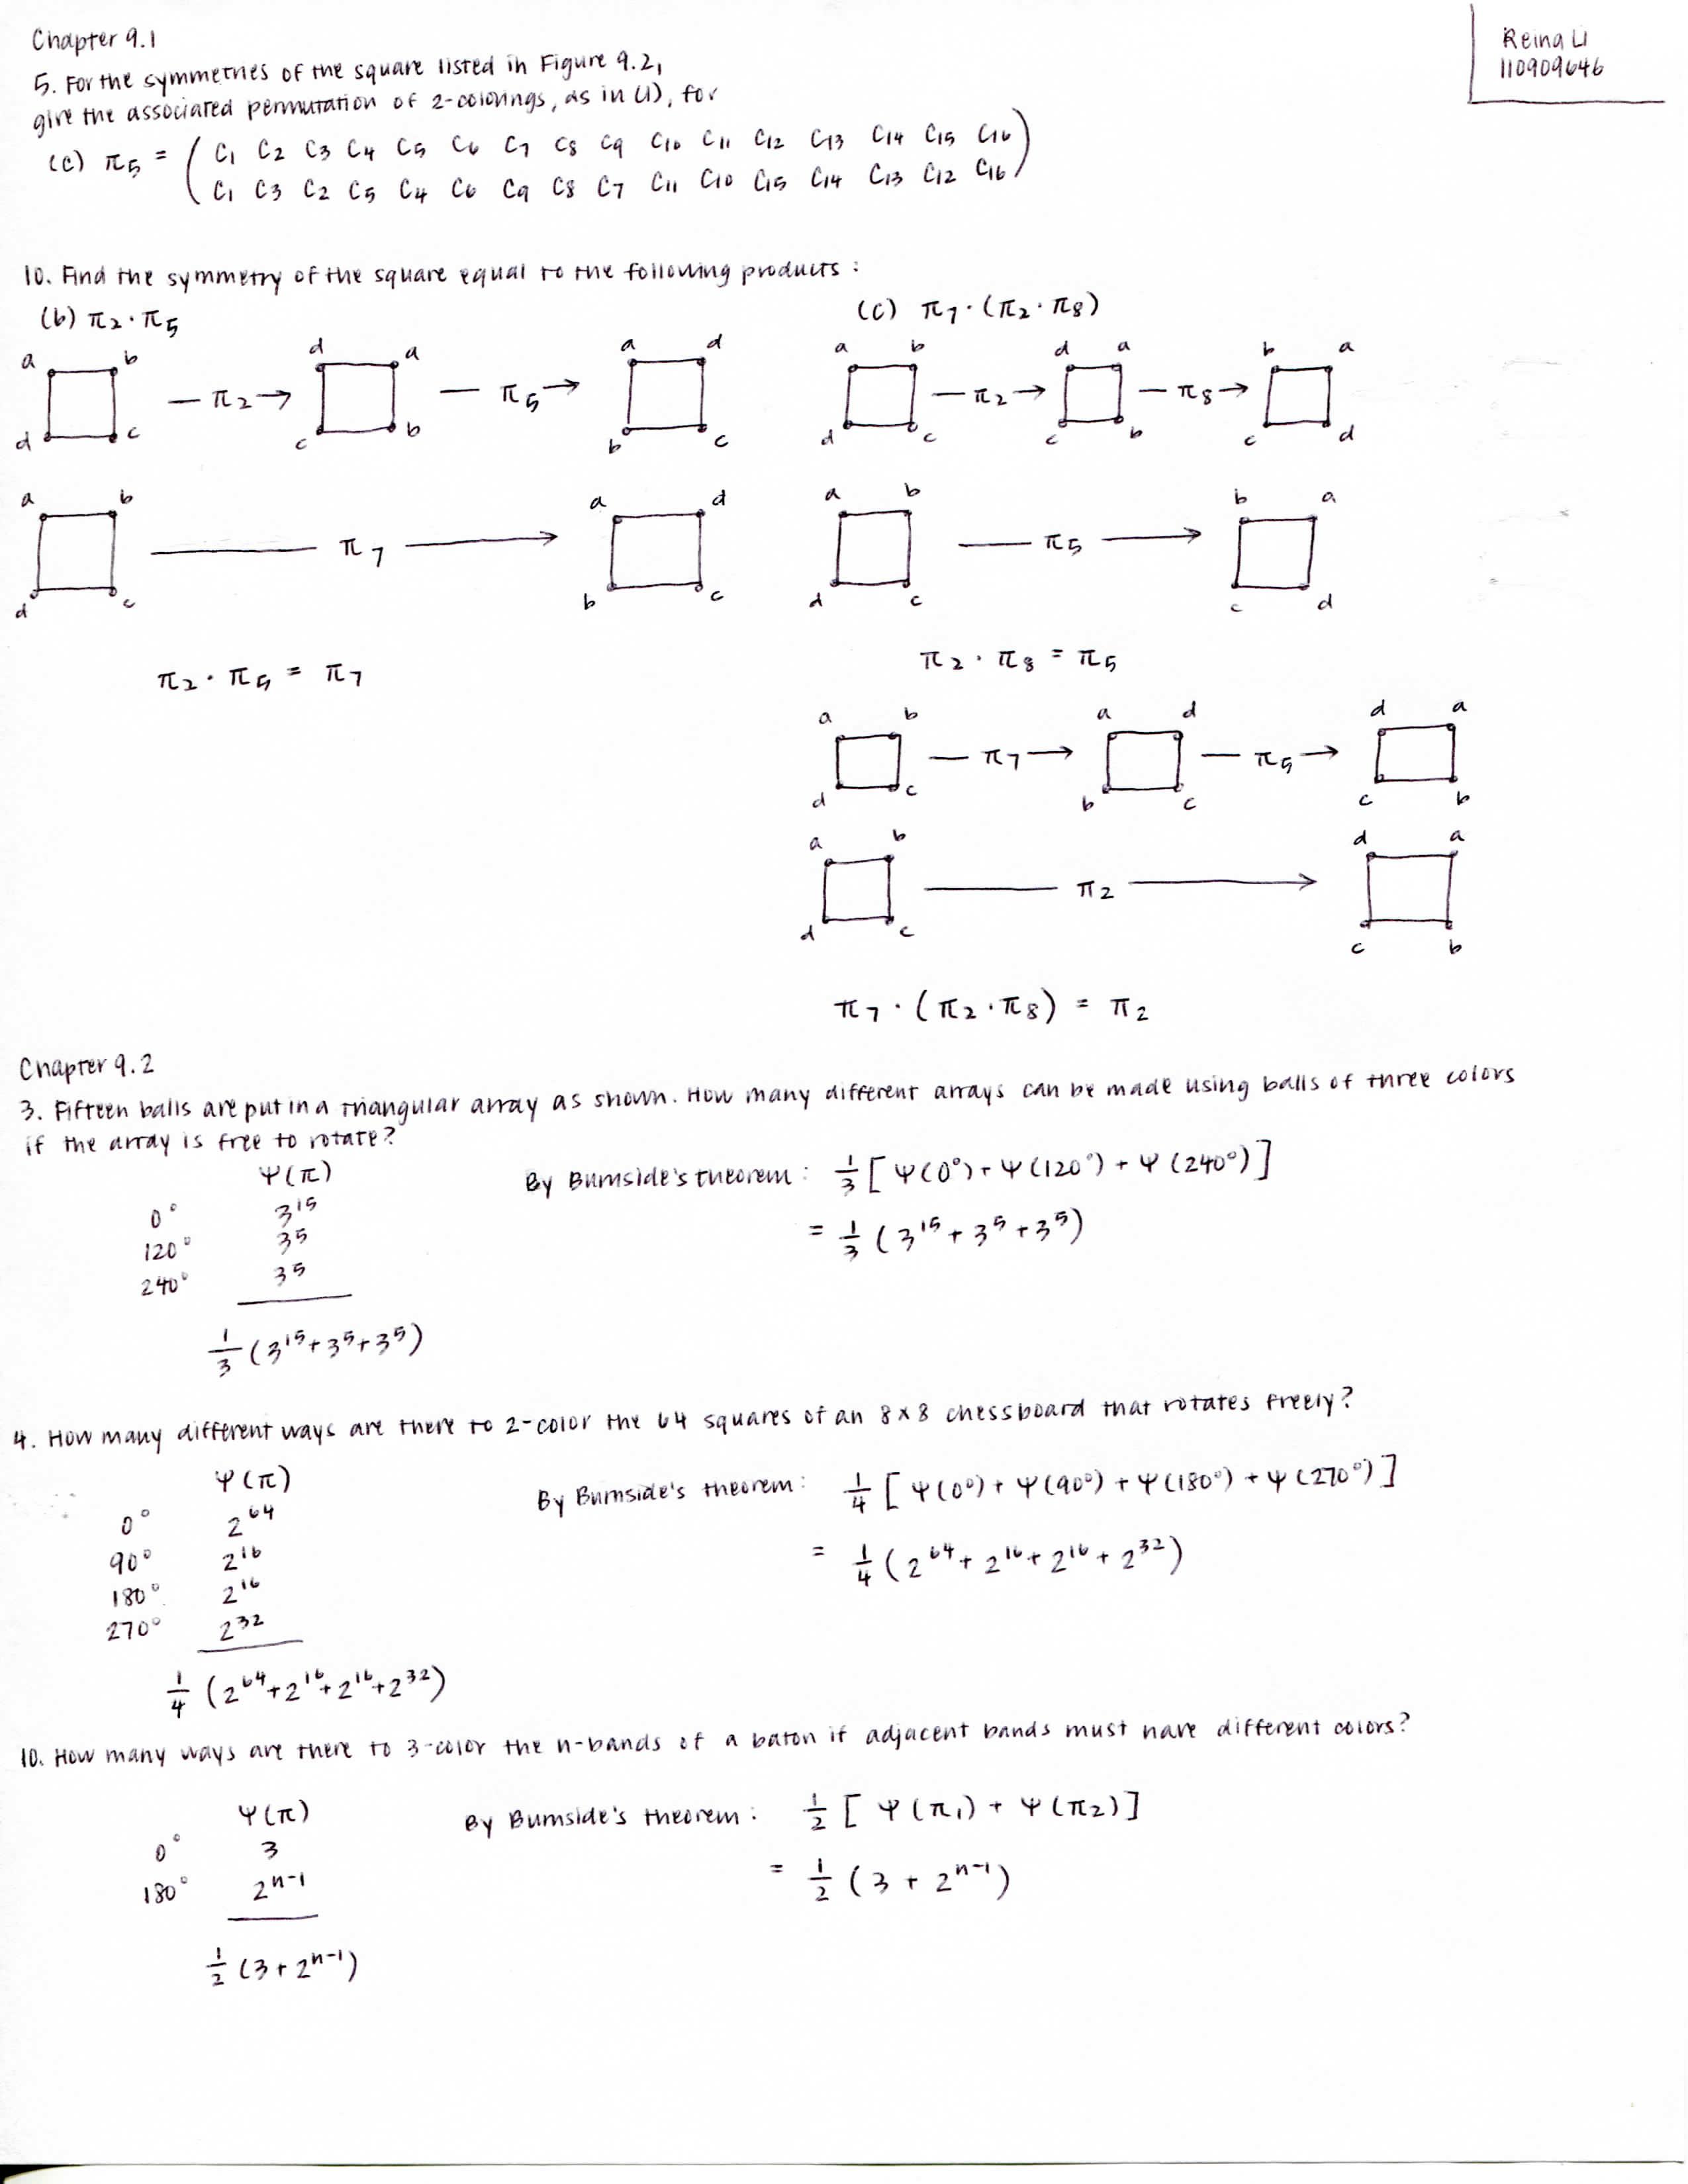 Reina Li
110909646
Chapter 9.1
5. For the symmetries of the square listed in Figure 9.2,
give the associated permutation of 2-colorings, as in (1), for
(c) π5 = ( C1 C2 C3 C4 C5 C6 C7 C8 C9 C10 C11 C12 C13 C14 C15 C16 )
( C1 C3 C2 C5 C4 C6 C9 C8 C7 C11 C10 C15 C14 C13 C12 C16 )
10. Find the symmetry of the square equal to the following products:
(b) π2 · π5
a b
d c
— π2 →
d a
c b
— π5 →
a d
b c
a b
d c
— π7 →
a d
b c
π2 · π5 = π7
(c) π7 · (π2 · π8)
a b
d c
— π2 →
d a
c b
— π8 →
b a
c d
a b
d c
— π5 →
b a
c d
π2 · π8 = π5
a b
d c
— π7 →
a d
b c
— π5 →
d a
c b
a b
d c
— π2 →
d a
c b
π7 · (π2 · π8) = π2
Chapter 9.2
3. Fifteen balls are put in a triangular array as shown. How many different arrays can be made using balls of three colors
if the array is free to rotate?
Ψ(π)
0° 3^15
120° 3^5
240° 3^5
1/3 (3^15 + 3^5 + 3^5)
By Burnside's theorem: 1/3 [Ψ(0°) + Ψ(120°) + Ψ(240°)]
= 1/3 (3^15 + 3^5 + 3^5)
4. How many different ways are there to 2-color the 64 squares of an 8x8 chessboard that rotates freely?
Ψ(π)
0° 2^64
90° 2^16
180° 2^16
270° 2^32
1/4 (2^64 + 2^16 + 2^16 + 2^32)
By Burnside's theorem: 1/4 [Ψ(0°) + Ψ(90°) + Ψ(180°) + Ψ(270°)]
= 1/4 (2^64 + 2^16 + 2^16 + 2^32)
10. How many ways are there to 3-color the n-bands of a baton if adjacent bands must have different colors?
Ψ(π)
0° 3
180° 2^n-1
1/2 (3 + 2^n-1)
By Burnside's theorem: 1/2 [Ψ(π1) + Ψ(π2)]
= 1/2 (3 + 2^n-1)